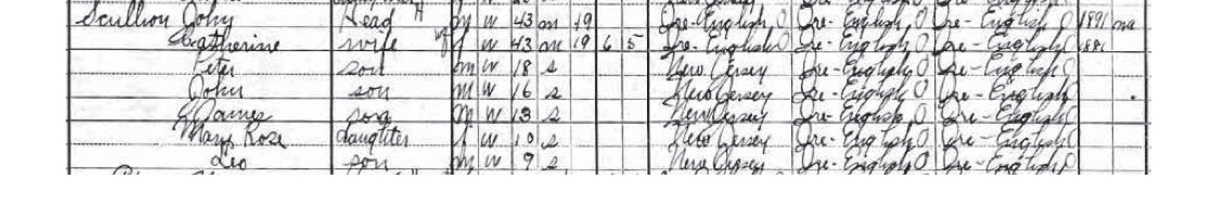 Scullion John Head m w 43 m 19 Ire-English Ire-English Ire-English 1891 na
Catherine wife f w 43 m 19 6 5 Ire-English Ire-English Ire-English 1881
Peter son m w 18 s New Jersey Ire-English Ire-English
John son m w 16 s New Jersey Ire-English Ire-English
James son m w 13 s New Jersey Ire-English Ire-English
Mary Rose daughter f w 10 s New Jersey Ire-English Ire-English
Leo son m w 9 s New Jersey Ire-English Ire-English